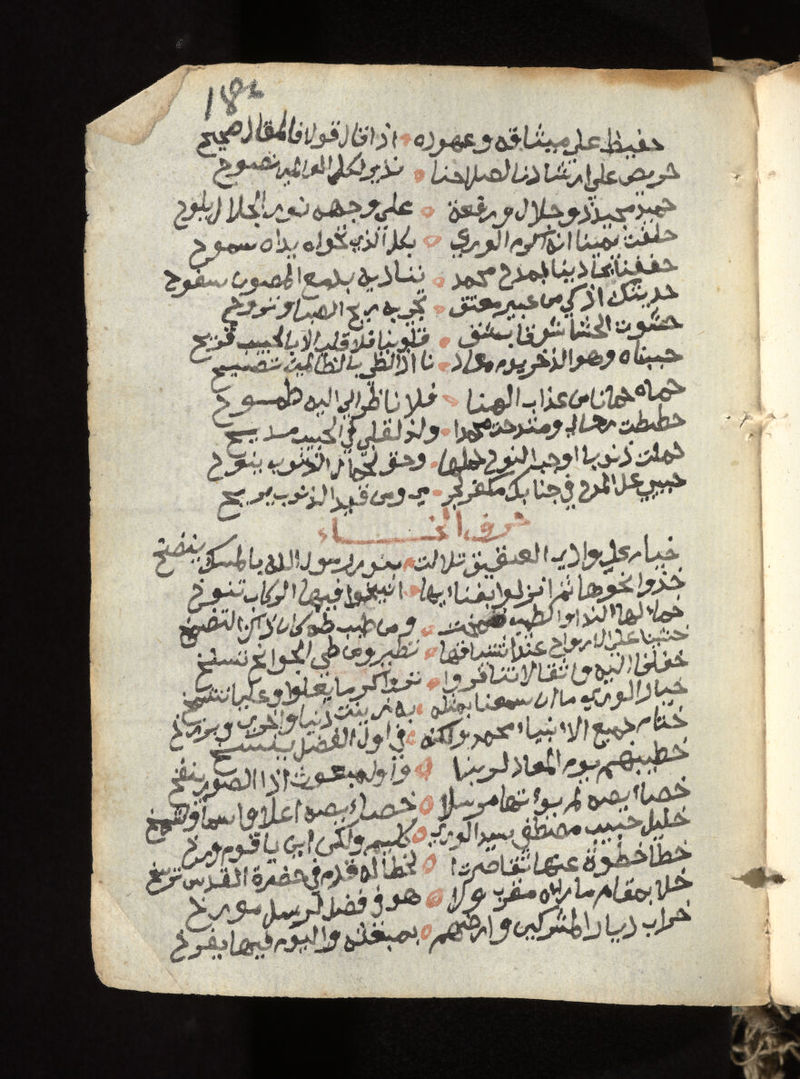 182
حفيظ على ميثاقه وعهوده اذا قال قولا فالمقال صحيح
حريص على ارشادنا لصلاحنا نذير لكل العالمين نصوح
حميد مجيد ذو جلال ورفعة على وجهه نور الجلال يلوح
حلفت يمينا انه اكرم الورى بكل الذي تحواه يداه سموح
حففنا بحادينا لمدح محمد تناديه بدمع المصون سفوح
حديثك اذكى من عبير معتق تجي به ريح الصبا وتروح
حشوت الحشا شوقا بشق قلوبنا فلا قلب الا بالحبيب قريح
حسبناه وهو الذخر يوم معاد نا اذا النظر بالظالمين تصيح
حماه حمانا من عذاب الهنا فلا ناظر الى اليه طموح
حططت رحالي ومتدحت محمدا ولذ لقلبي في الحبيب مديح
حملت ذنوبا اوجب النوح حملها وحق لحمال الذنوب ينوح
حبيبي على المدح في جنابك مكفر لجرمي ومن قيد الذنوب يريح
حرف الخاء
خيام على وادي العقيق تلالت بنور رسول الله بالمسك ينضخ
خذوا نحوها ثم انزلوا بفنائها انيخوا فيها الركاب تنوخ
خمائلها النداوا كطيب ضمخت ومن طيب طه كان ذاك التضمخ
خشينا على الارواح عند انتشاقها تطير ومن طي الجوانح تسلخ
خفافا اليه وثقالا تنافروا تروا كرما يعلوا وعليا تشمخ
خيار الورى ما ان سمعنا بمثله به زينت دنيا واخرى وبرزخ
ختام جميع الانبياء محمد ولكنه في اول الفضل ينسخ
خطيبهم يوم المعاد لربنا واول مبعوث اذا الصور ينفخ
خصائصه لم يؤتها مرسلا خصائصه اعلا واسما وتشمخ
خليل حبيب مصطفى سيد الورى كليم ولكن اين يا قوم
خطا خطوة عنها تقاصرت الخطا له قدم في حضرة القدس ترسخ
خلا بمقام ما رءاه مقرب ولا هو في فضل لرسل مورخ
خراب ديار المشركين وارضهم بمبعثه واليوم فيها يفوخ